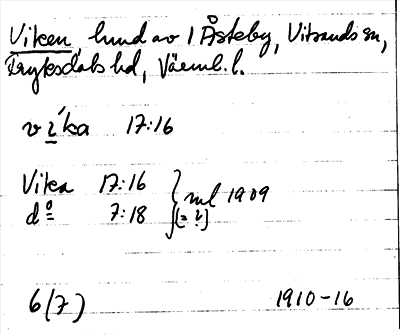 Viken, hmd av 1 Åsteby, Vitsands sn,
Fryksdals hd, Värml. l.
vi´ka 17:16
Vika 17:16
dº 7:18 [= ?] ml 1909
6(7) 1910-16